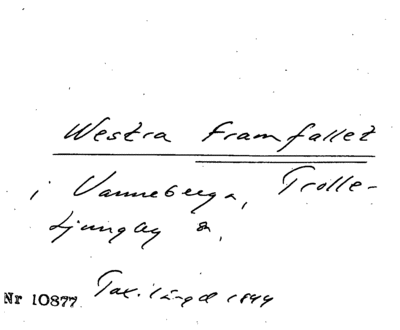 Westra Framfallet
i Vanneberga, Trolle-
Ljungby s.
Nr 10877. Tax.längd 1844